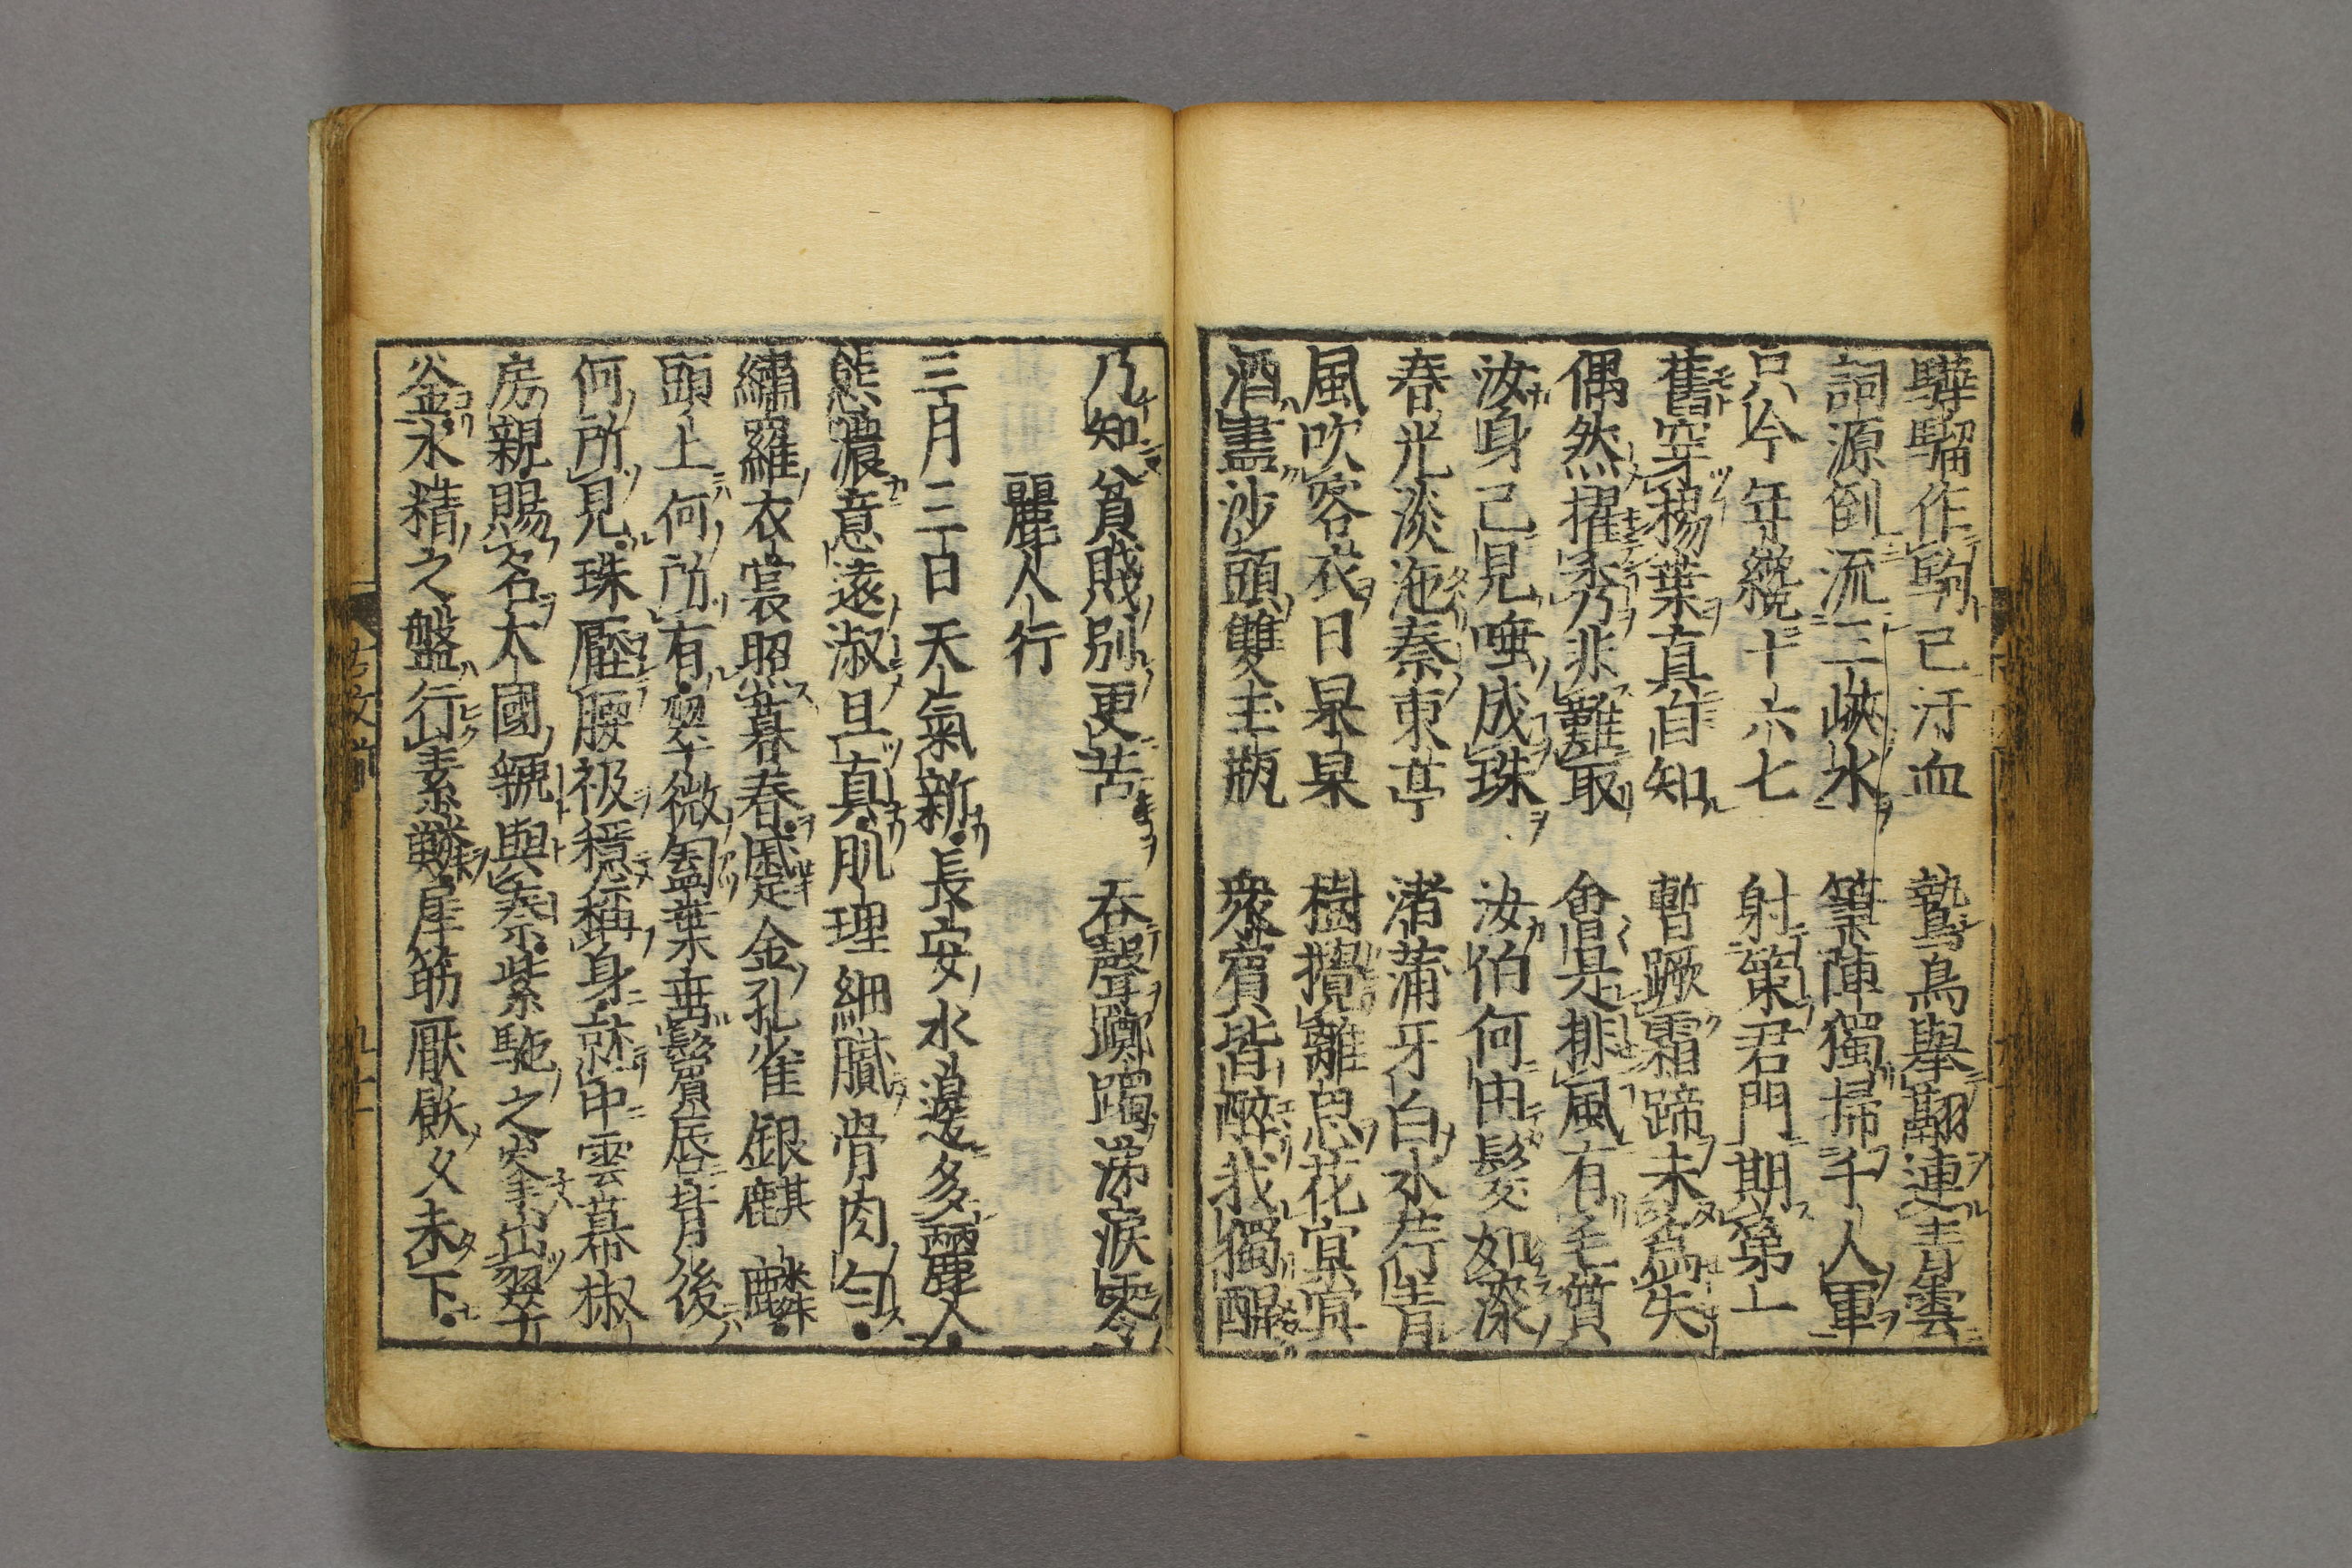 驊騮作駒已汗血　鷙鳥擧翮連青雲
詞源倒流三峽水　筆陣獨掃千人軍
只今年纔十六七　射策君門期第一
舊穿楊葉真自知　暫蹶霜蹄未爲失
偶然擢秀非難取　會是排風有毛質
汝身已見唾成珠　汝伯何由髮如漆
春光淡沲秦東亭　渚蒲牙白水荇青
風吹客衣日杲杲　樹攪離思花冥冥
酒盡沙頭雙玉瓶　衆賓皆醉我獨醒
乃知貧賤別更苦　吞聲躑躅涕淚零
麗人行
三月三日天氣新長安水邊多麗人
態濃意遠淑且真肌理細膩骨肉勻
繡羅衣裳照暮春蹙金孔雀銀麒麟
頭上何所有翠微㔩葉垂鬢唇背後
何所見珠壓腰衱穩稱身就中雲幕椒
房親賜名大國虢與秦紫駞之峯出翠
釜水精之盤行素鱗犀筯厭飫久未下